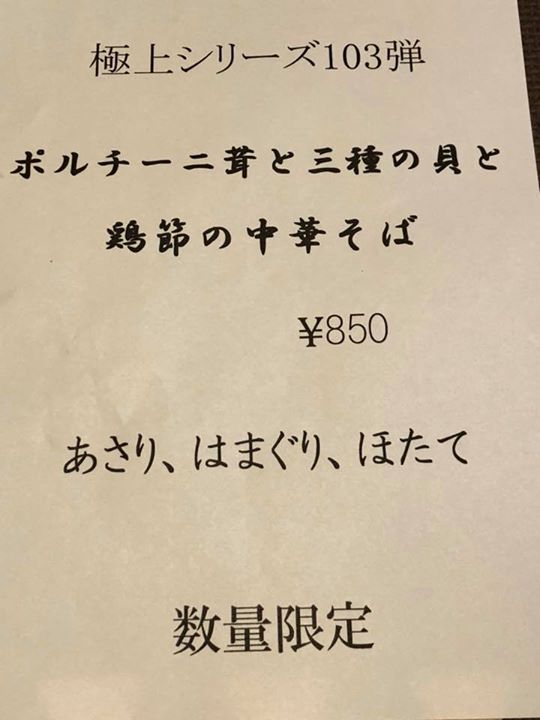 極上シリーズ103弾
ポルチーニ茸と三種の貝と
鶏節の中華そば
¥850
あさり、はまぐり、ほたて
数量限定